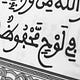 اللَّهُ مِن
فِي لَوْحٍ مَّحْفُوظٍ